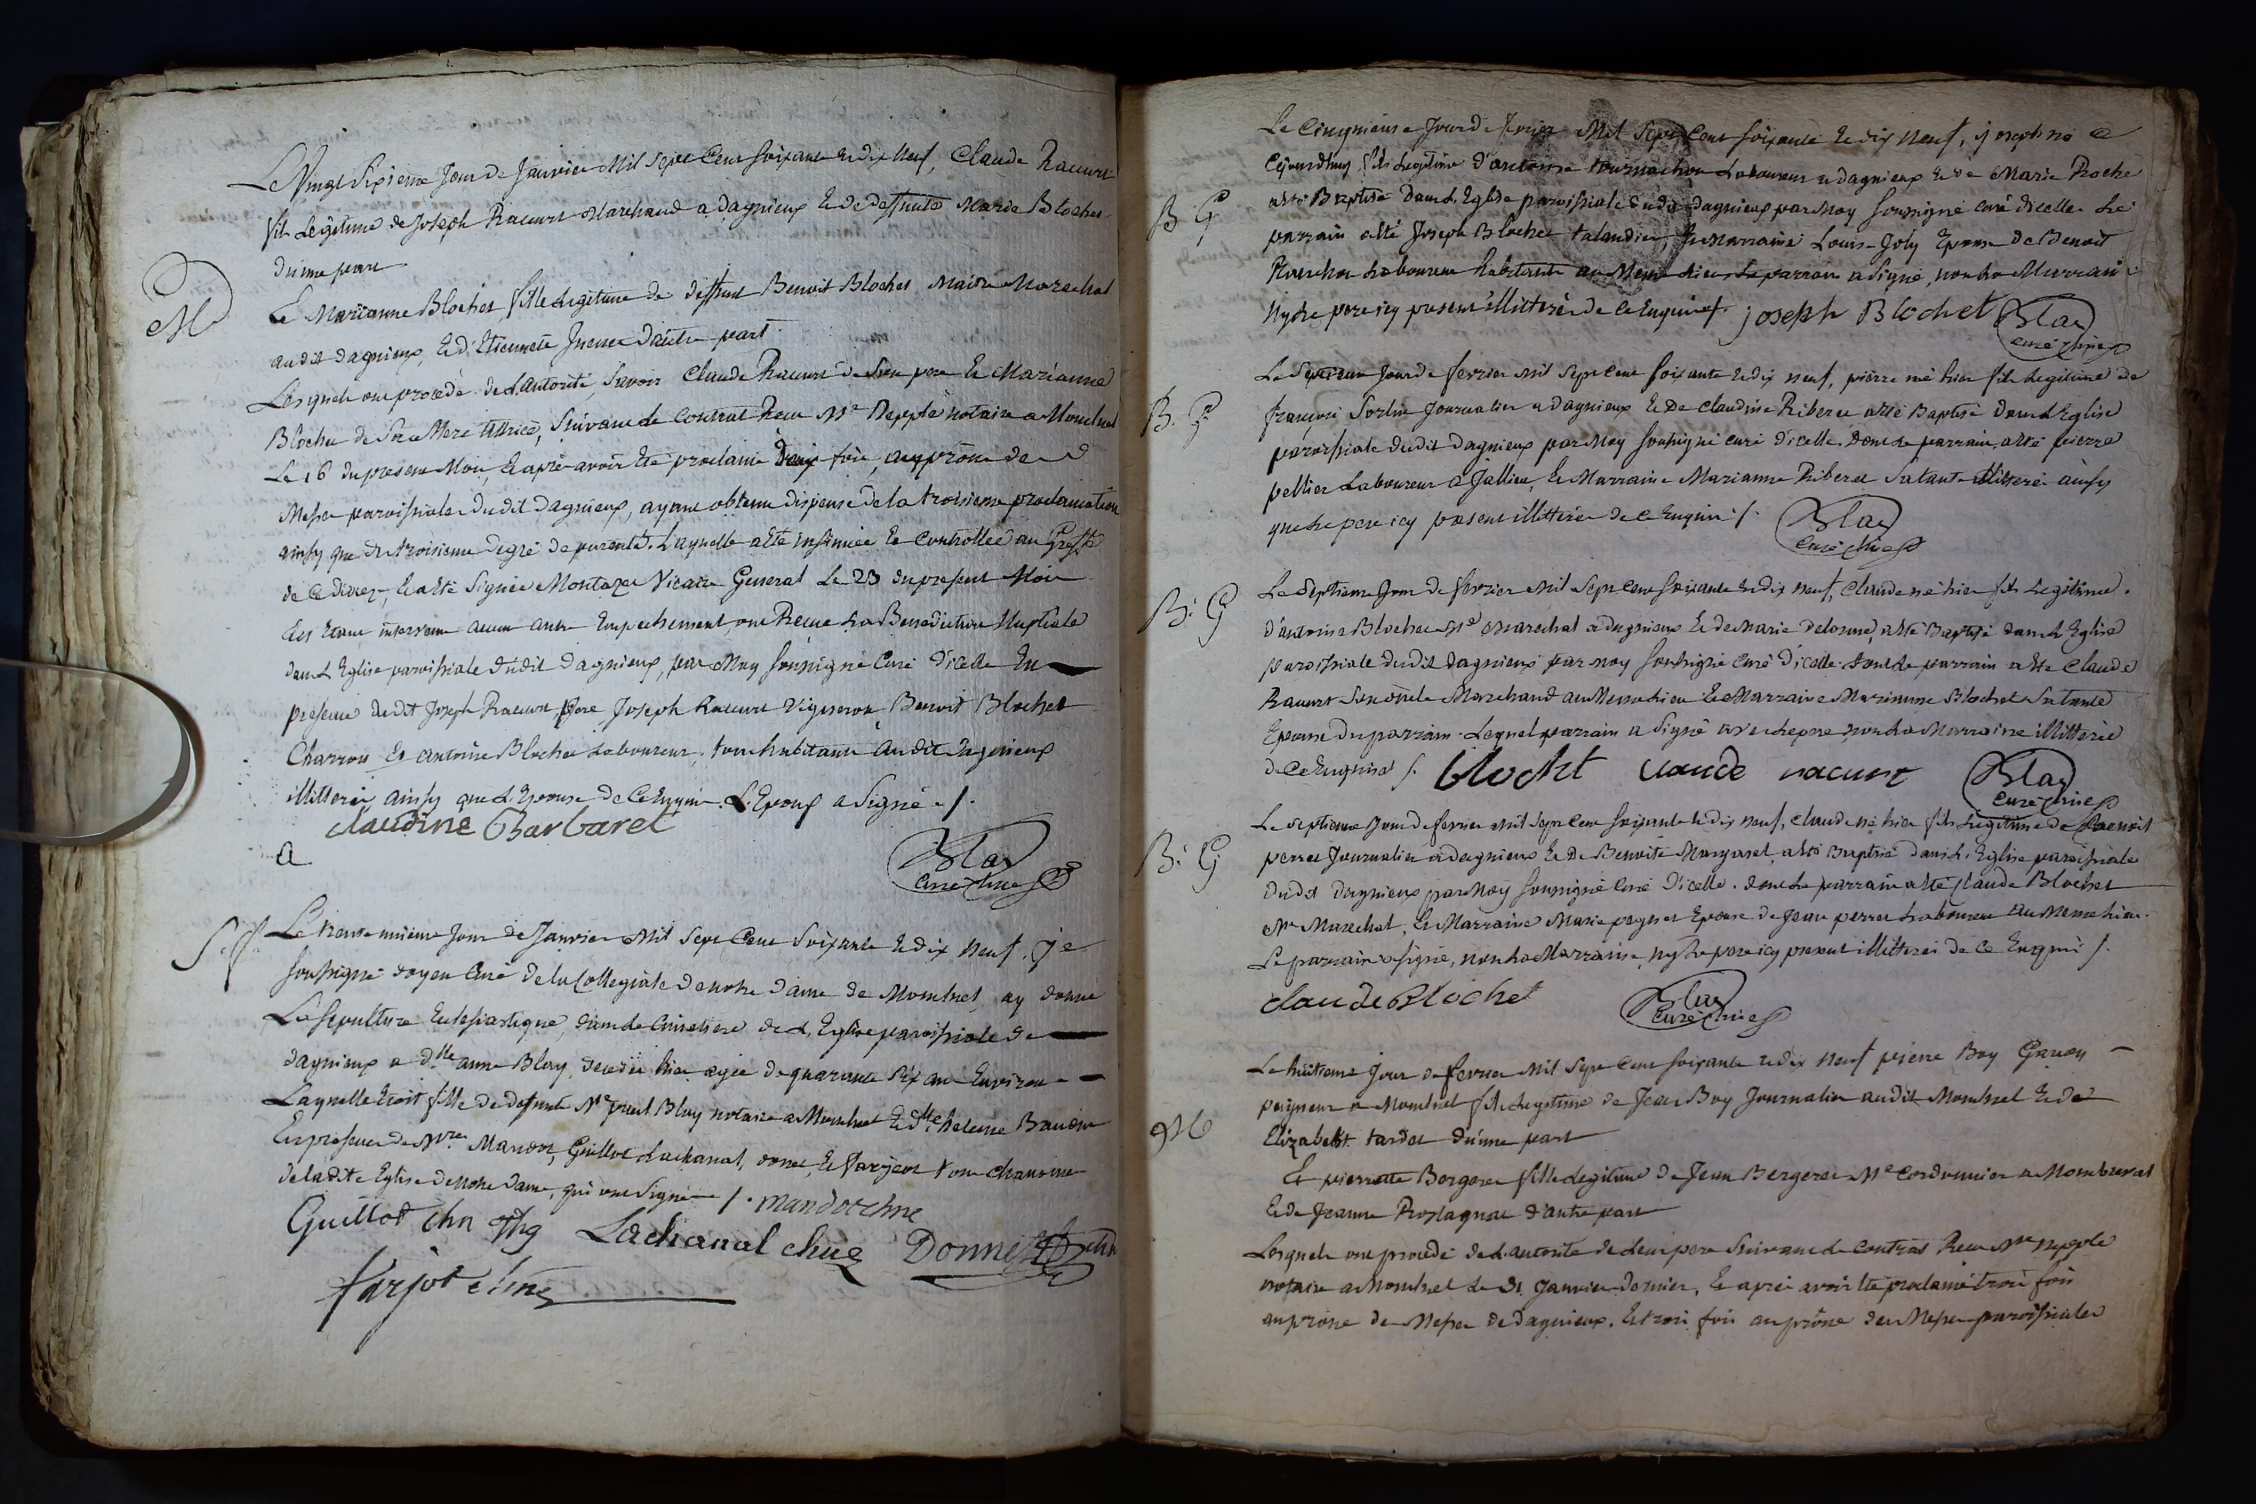 Le Vingt Sixieme Jour de Janvier Mil Sept Cent Soixante et dix Neuf, Claude Racurt
fils Legitime de Joseph Racurt Marchand a Dagnieux et de deffunte Marie Blochet
d'une part
M
Et Marianne Blochet fille Legitime de deffunt Benoit Blochet Maitre Marechal
audit dagnieux, et d'Etiennete d'autre part
Lesquels ont procédé de L'autorité, Savoir Claude Racurt de Son pere et Marianne
Blochet de Sa Mere tutrice, Suivant Le Contrat Recu Me notaire a Montluel
Le 16 du present Mois, et après avoir Eté proclamé Deux fois, au prône de
Messe paroissiale dudit Dagnieux, ayant obtenu dispense de la troisieme proclamation
ainsy que du troisieme degré de parenté. Laquelle a Eté insinuée et Controllée au Greffe
de ce dioceze, et a Eté Signée Montazet Vicaire General Le 23 du present Mois
intervenu aucun autre Empechement, ont Recue La Benediction Nuptiale
dans L'Eglise paroissiale dudit dagnieux, par Moy Soussigné Curé d'icelle En
presence dudit Joseph Racurt pere, Joseph Racurt Vigneron, Benoit Blochet
Charron Et Antoine Blochet Laboureur, tous habitants audit dagnieux
illitteré ainsy que L'Epouse de Ce Enquis. L'Epoux a Signé ./.
claudine Barbaret
a
Blay
curé
S. f.
Le trente unieme Jour de Janvier Mil Sept Cent Soixante et dix Neuf. Je
Soussigné doyen Curé de la Collegiale de notre dame de Montluel, ay donné
La Sepulture Eclesiastique, dans Le Cimetiere de L'Eglise paroissiale de
dagnieux a dlle anne Blay, decedée hier agée de quarante Six ans Environ
Laquelle Etoit fille de defunt Me Blay notaire a Montluel et dlle helenne Baudin
En presence de Mrs Mandot, Guillot Lachanal, donnet, et farjeot tous chanoines
de ladite Eglise de notre Dame, qui ont Signé ./. mandot chne
Guillot chn Lachanal chne Donnet
farjot chne
Le Cinquieme Jour de fevrier Mil Sept Cent Soixante et dix Neuf, Joseph né
B G
Cejourdhuy fils Legitime d'antoine tournachon Laboureur a dagnieux et de Marie Roche
a été Baptisé dans L'Eglise paroissiale dudit dagnieux par Moy Soussigné curé d'icelle. Le
parrain a été Joseph Blochet talandier, et Marraine Louise Joly Epouse de Benoit
Laboureur habitants au Meme Lieu Le parrain a Signé, non La Marraine
Ny Le pere icy present illitterés de Ce Enquis ./. joseph Blochet Blay
curé
B. G
Le Jour de fevrier Mil Sept Cent Soixante et dix neuf, pierre né hier fils Legitime de
françois Sorlin Journalier a dagnieux et De claudine Riberet a été Baptisé dans L'Eglise
paroissiale dudit Dagnieux par Moy Soussigné curé d'icelle. dont Le parrain a été pierre
pellier Laboureur a Jallieu, et Marraine Marianne Riberet Sa tante illitteré ainsy
que Le pere icy present illitterés de Ce Enquis ./. Blay
curé
B. G
Le Septieme Jour de fevrier Mil Sept Cent Soixante et dix neuf, Claude né hier fils Legitime
d'antoine Blochet Me Marechal a dagnieux et de Marie Delorme, a été Baptisé dans L'Eglise
paroissiale dudit dagnieux par moy Soussigné curé d'icelle dont Le parrain a été Claude
Racurt Son oncle Marchand au Meme Lieu et Marraine Marianne Blochet Sa tante
Epouse du parrain. Lequel parrain a Signé avec Le pere non La Marraine illitterée
de Ce Enquise ./. blocht claude racurt Blay
curé
B. G
Le septieme Jour de fevrier Mil Sept Cent Soixante et dix neuf, Claude né hier fils Legitime de Benoit
perret Journalier a dagnieux et de Benoite Margaret, a été Baptisé dans L'Eglise paroissiale
dudit Dagnieux par Moy Soussigné Curé d'icelle. dont Le parrain a été Claude Blochet
Me Marechal, et Marraine Marie Epouse de Jean perret Laboureur au Meme Lieu.
Le parrain a signé, non La Marraine, ny Le pere icy present illitterés de Ce Enquis ./.
claude Blochet Blay
curé
M
Le huitieme Jour de fevrier Mil Sept Cent Soixante et dix Neuf pierre Boy Garçon
peigneur a Montluel fils Legitime de Jean Boy Journalier audit Montluel et de
Elizabeth tardet d'une part
Et pierrette Bergeret fille Legitime de Jean Bergeret Me Cordonnier a Montluel
et de Jeanne d'autre part
Lesquels ont procédé de L'autorité de Leurs pere Suivant Le contrat Recu Me
notaire a Montluel Le 31 Janvier dernier, et après avoir Eté proclamé trois fois
au prône de Messe de dagnieux. Et trois fois au prône des Messes paroissiales